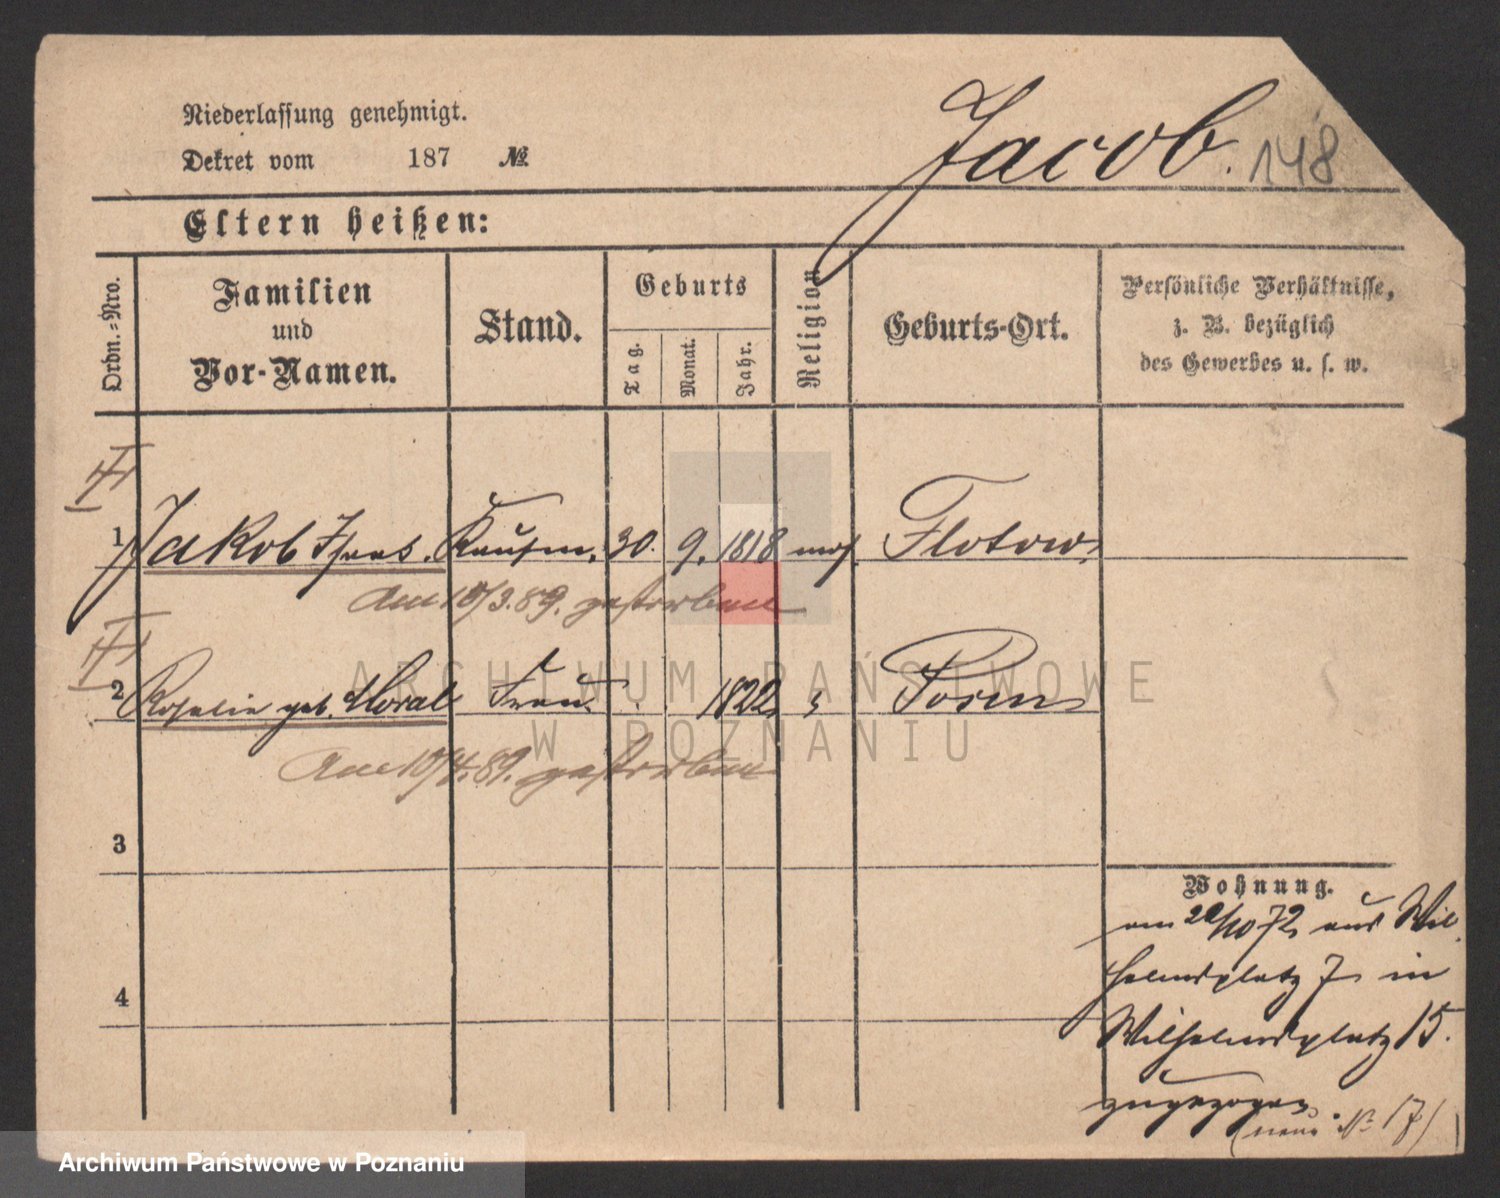 Jacob. 148
Niederlassung genehmigt.
Dekret vom 187 №
Eltern heißen:
Ordn.-Nro.
Familien
und
Vor-Namen.
Stand.
Geburts
Tag.
Monat.
Jahr.
Religion
Geburts-Ort.
Persönliche Verhältnisse,
z. B. bezüglich
des Gewerbes u. s. w.
1 Jakob Kaufm. 30. 9. 1818 mos. Flotow
Am 10/3.89. gestorben
2 Rosalie geb. Moral Frau 1822 Posen
Am 10/4.89. gestorben
3
4
Wohnung.
am 22/10 72 aus Wil-
helmsplatz 7 in
Wilhelmsplatz 15.
zugezogen
(neue № 17)
ARCHIWUM PAŃSTWOWE
W POZNANIU
Archiwum Państwowe w Poznaniu